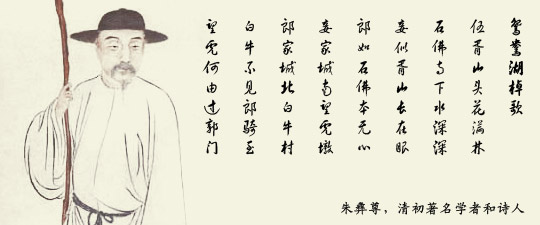 鸳鸯湖棹歌
伍胥山头花满林
石佛寺下水深深
妾似胥山长在眼
郎如石佛本无心
妾家城南望虎墩
郎家城北白牛村
白牛不见郎骑至
望虎何由过郭门
朱彝尊，清初著名学者和诗人